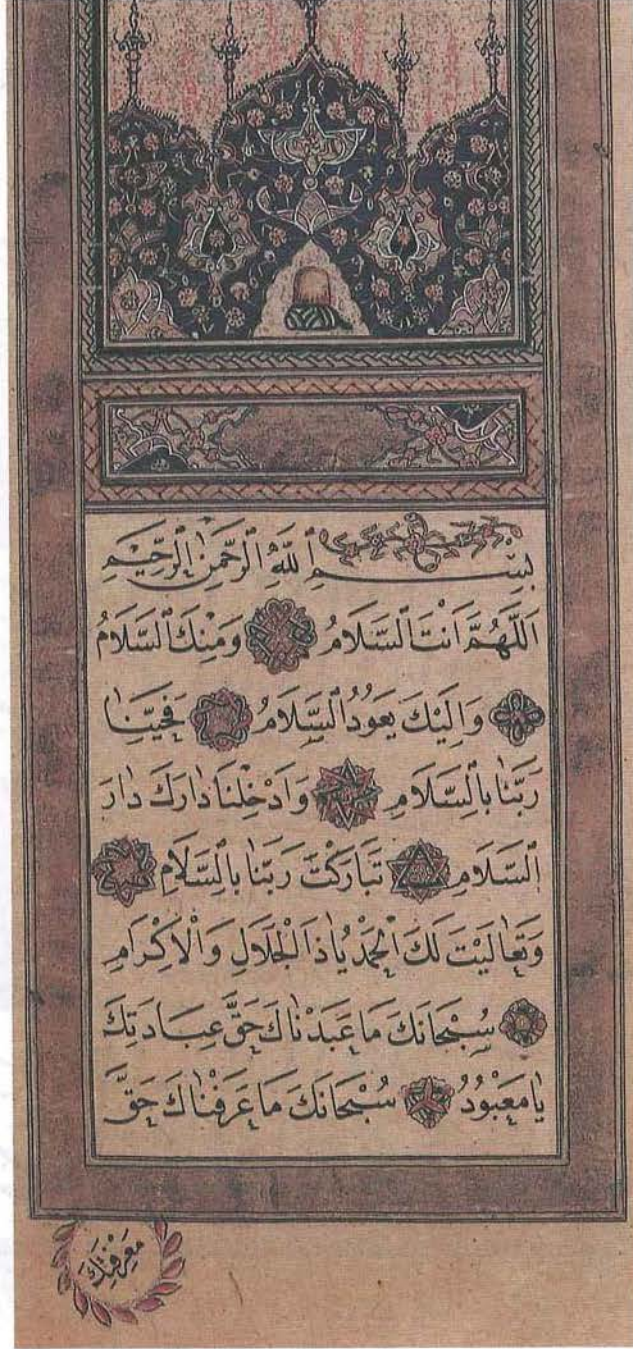 بِسْمِ ٱللّٰهِ ٱلرَّحْمٰنِ ٱلرَّحِيمِ
اَللّٰهُمَّ اَنْتَ ٱلسَّلَامُ وَمِنْكَ ٱلسَّلَامُ
وَاِلَيْكَ يَعُودُ ٱلسَّلَامُ فَحَيِّنَا
رَبَّنَا بِالسَّلَامِ وَاَدْخِلْنَا دَارَكَ دَارَ
السَّلَامِ تَبَارَكْتَ رَبَّنَا بِالسَّلَامِ
وَتَعَالَيْتَ لَكَ ٱلْحَمْدُ يَا ذَا ٱلْجَلَالِ وَالْاِكْرَامِ
سُبْحَانَكَ مَا عَبَدْنَاكَ حَقَّ عِبَادَتِكَ
يَا مَعْبُودُ سُبْحَانَكَ مَا عَرَفْنَاكَ حَقَّ
مَعْرِفَتِكَ